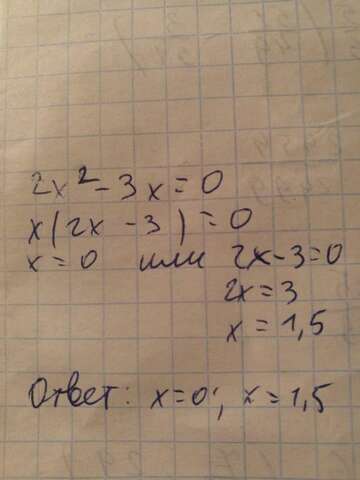 2x² - 3x = 0
x(2x - 3) = 0
x = 0 или 2x - 3 = 0
2x = 3
x = 1,5
Ответ: x = 0; x = 1,5